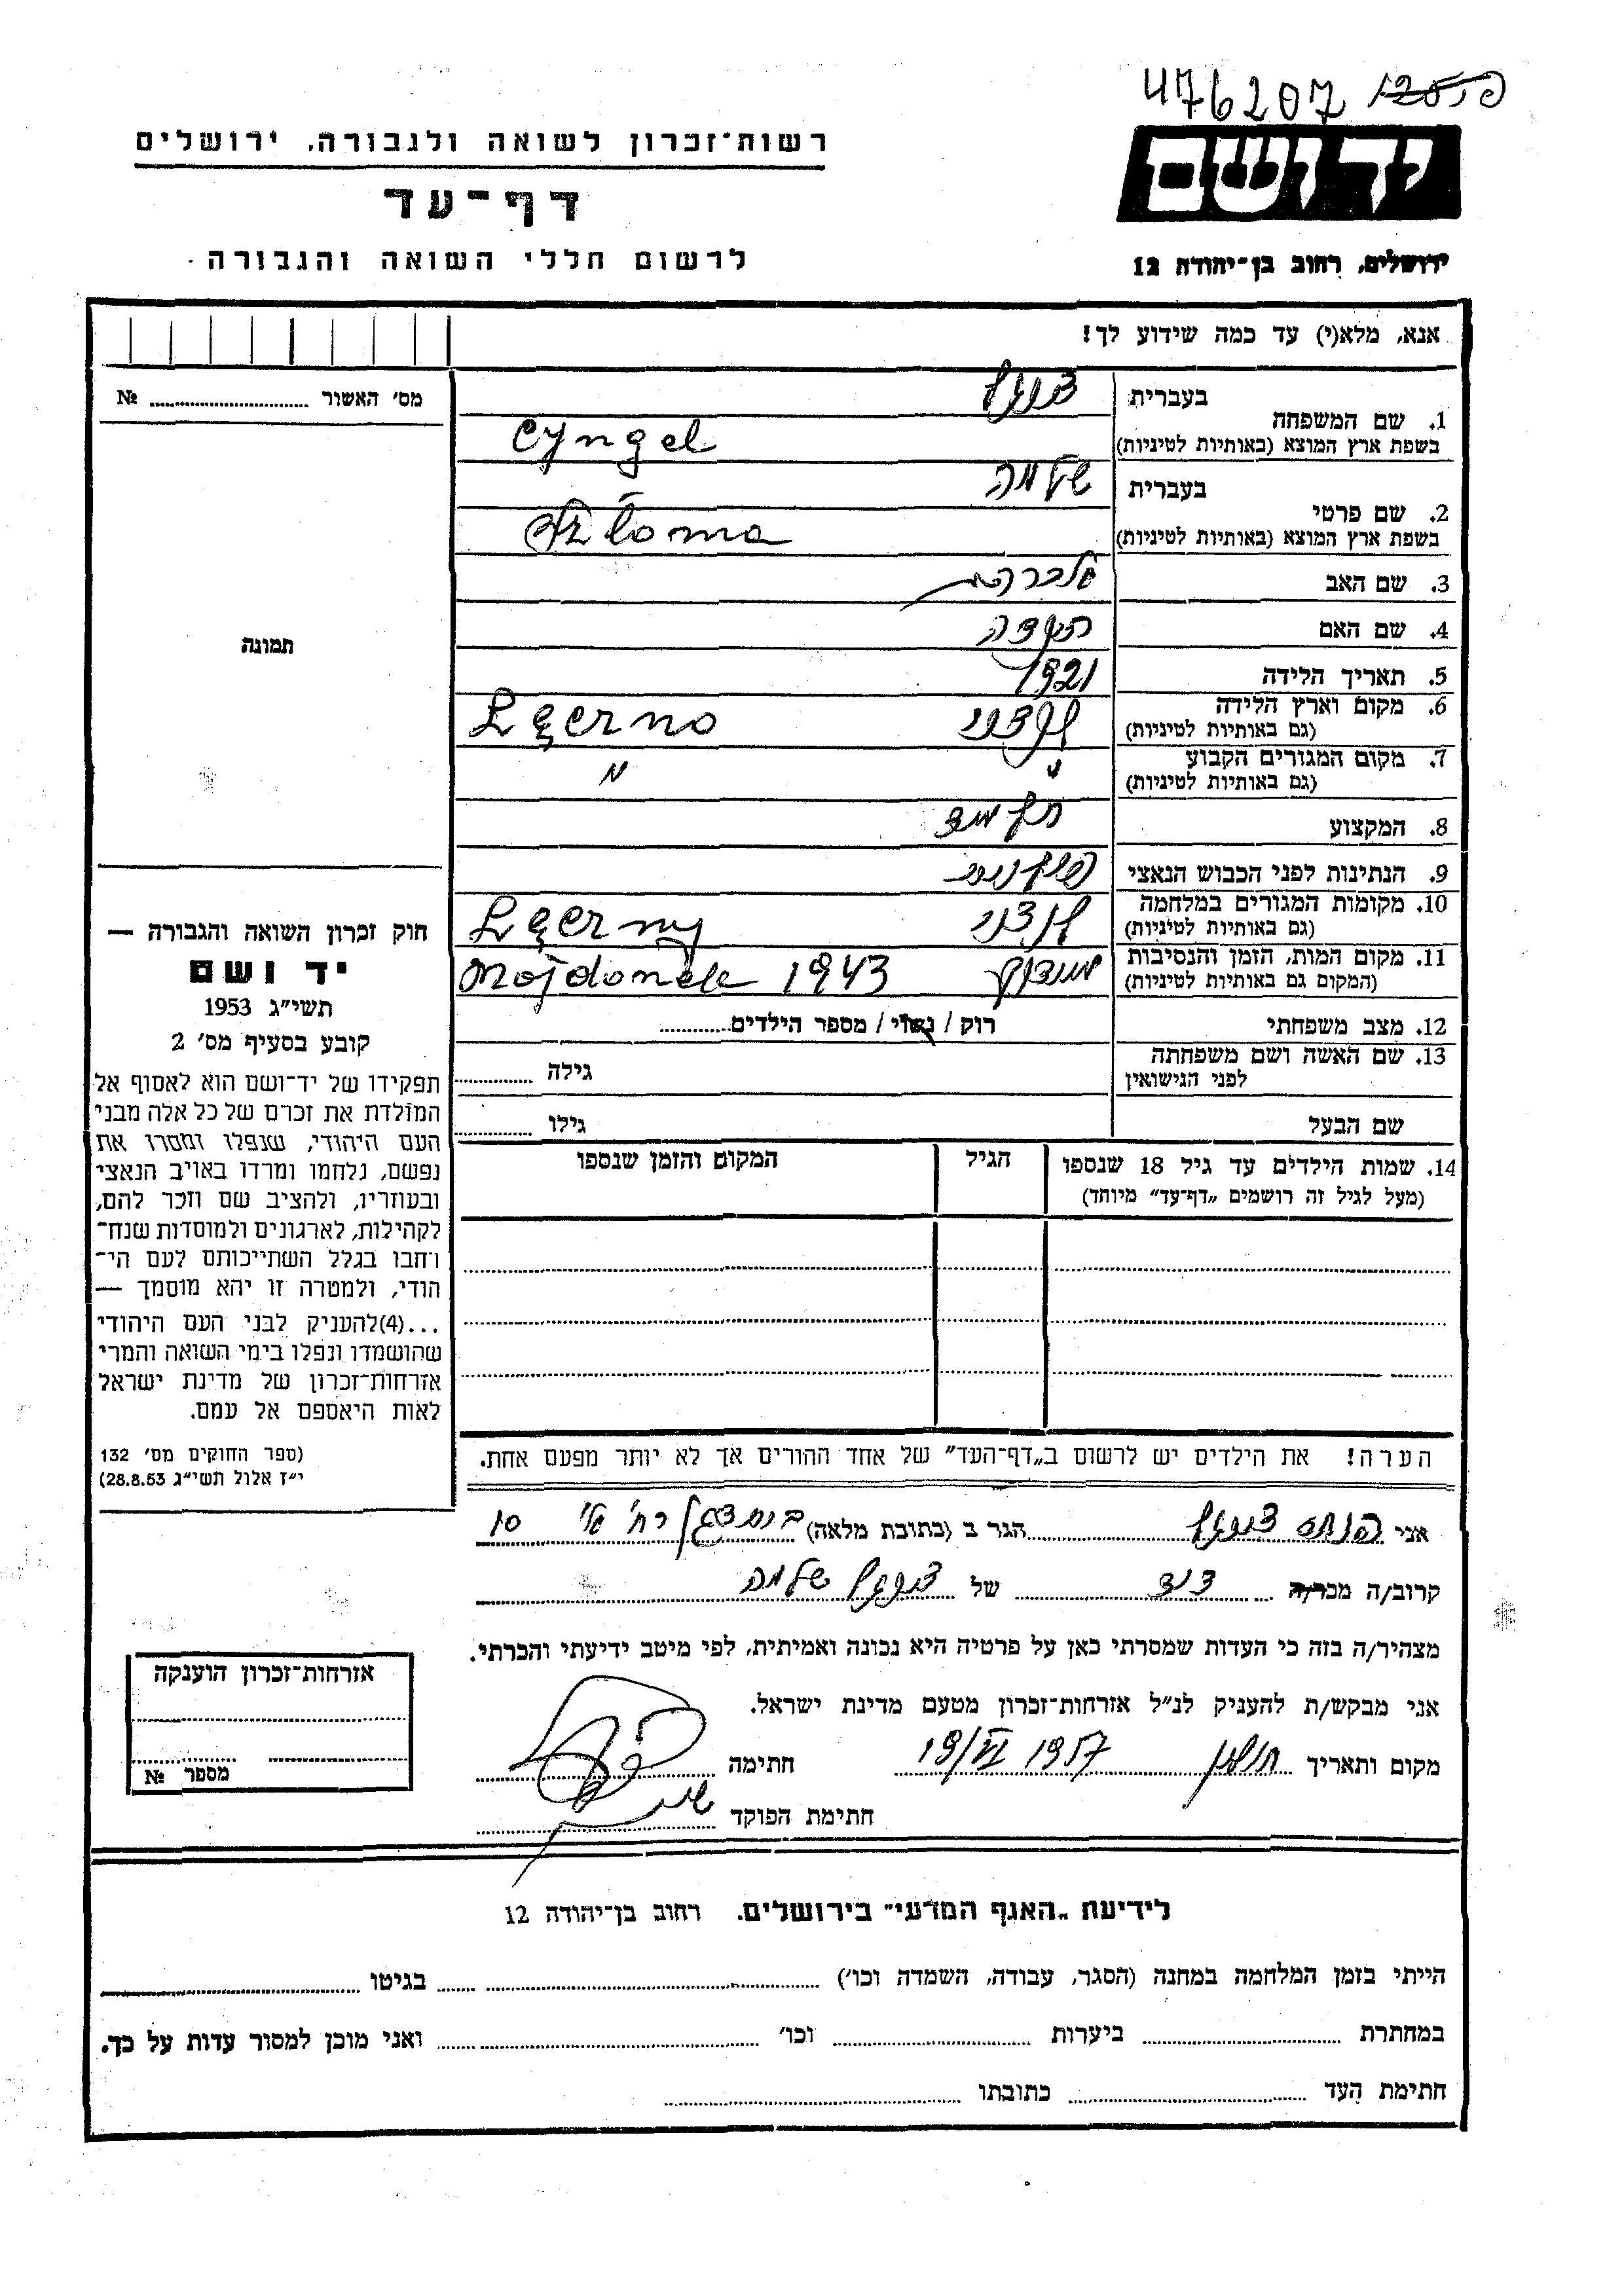 476207
רשות־זכרון לשואה ולגבורה, ירושלים
יד ושם
דף־עד
לרשום חללי השואה והגבורה
ירושלים, רחוב בן־יהודה 12
אנא, מלא(י) עד כמה שידוע לך!
מס׳ האשור № ........
1. שם המשפחה בעברית
בשפת ארץ המוצא (באותיות לטיניות) Cyngel
2. שם פרטי בעברית שלמה
בשפת ארץ המוצא (באותיות לטיניות) Szloma
3. שם האב אברהם
4. שם האם
5. תאריך הלידה 1921
6. מקום וארץ הלידה
(גם באותיות לטיניות) Łęczno
7. מקום המגורים הקבוע
(גם באותיות לטיניות) "
8. המקצוע תלמיד
9. הנתינות לפני הכבוש הנאצי פולנית
10. מקומות המגורים במלחמה
(גם באותיות לטיניות) Łęczny
11. מקום המות, הזמן והנסיבות
(המקום גם באותיות לטיניות) מיידנק Majdanek 1943
12. מצב משפחתי רוק / נשוי / מספר הילדים........
13. שם האשה ושם משפחתה
לפני הנישואין גילה ........
שם הבעל גילו ........
14. שמות הילדים עד גיל 18 שנספו הגיל המקום והזמן שנספו
(מעל לגיל זה רושמים „דף־עד” מיוחד)
הערה! את הילדים יש לרשום ב„דף־העד” של אחד ההורים אך לא יותר מפעם אחת.
תמונה
חוק זכרון השואה והגבורה —
יד ושם
תשי״ג 1953
קובע בסעיף מס׳ 2
תפקידו של יד־ושם הוא לאסוף אל
המולדת את זכרם של כל אלה מבני
העם היהודי, שנפלו ומסרו את
נפשם, נלחמו ומרדו באויב הנאצי
ובעוזריו, ולהציב שם וזכר להם,
לקהילות, לארגונים ולמוסדות שנח־
רבו בגלל השתייכותם לעם הי־
הודי, ולמטרה זו יהא מוסמך —
...(4)להעניק לבני העם היהודי
שהושמדו ונפלו בימי השואה והמרי
אזרחות־זכרון של מדינת ישראל
לאות היאספם אל עמם.
(ספר החוקים מס׳ 132
י״ז אלול תשי״ג 28.8.53)
אני פנחס הגר ב (כתובת מלאה) רח׳ 10
קרוב/ה מכר/ה דוד של שלמה
מצהיר/ה בזה כי העדות שמסרתי כאן על פרטיה היא נכונה ואמיתית, לפי מיטב ידיעתי והכרתי.
אני מבקש/ת להעניק לנ״ל אזרחות־זכרון מטעם מדינת ישראל.
מקום ותאריך חולון 19/VI 1957 חתימה
חתימת הפוקד
אזרחות־זכרון הוענקה
מספר №
לידיעת „האגף המדעי” בירושלים, רחוב בן־יהודה 12
הייתי בזמן המלחמה במחנה (הסגר, עבודה, השמדה וכו׳) ........ בגיטו ........
במחתרת ........ ביערות ........ וכו׳ ........ ואני מוכן למסור עדות על כך.
חתימת העד ........ כתובתו ........